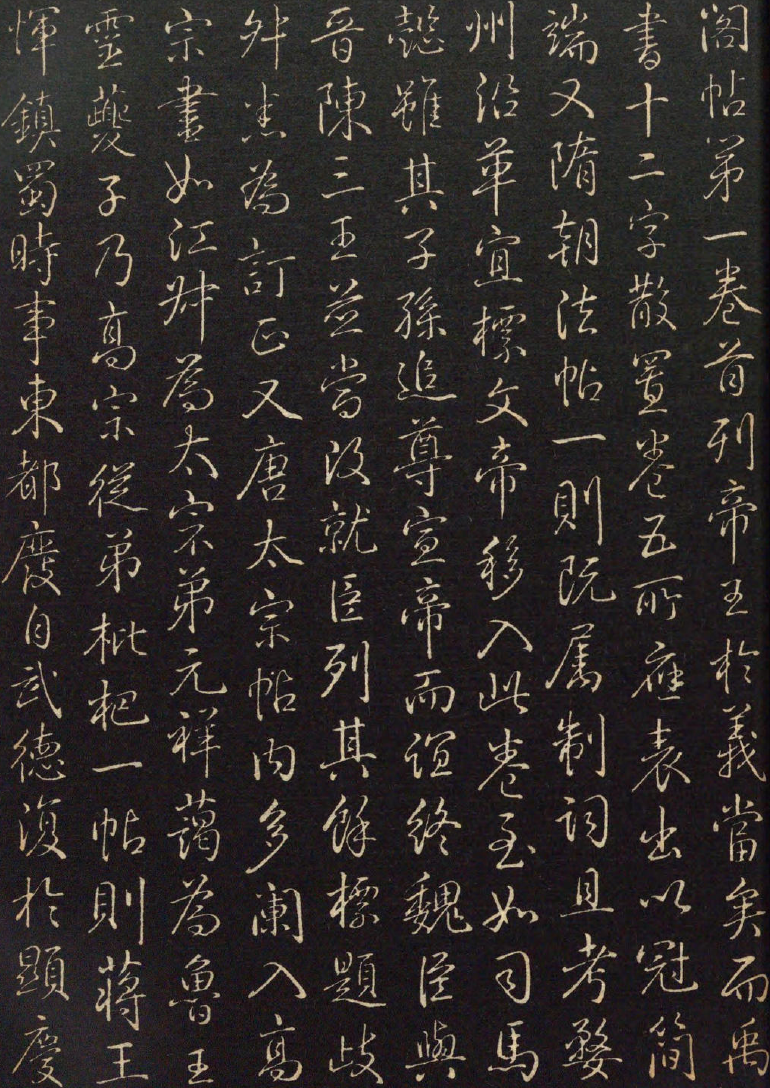 閣帖第一卷首列帝王於義當矣而禹
書十二字散置卷五所應表出以冠簡
端又隋朝法帖一則既属制詞且考婺
州沿革宜標文帝移入此卷至如司馬
懿雖其子孫追尊宣帝而誼終魏臣與
晉陳三王並當改就臣列其餘標題歧
舛悉為訂正又唐太宗帖內多闌入高
宗書如江叔為太宗弟元祥藹為魯王
靈夔子乃高宗從弟枇杷一帖則蔣王
惲鎮蜀時事東都廢自武德復於顯慶